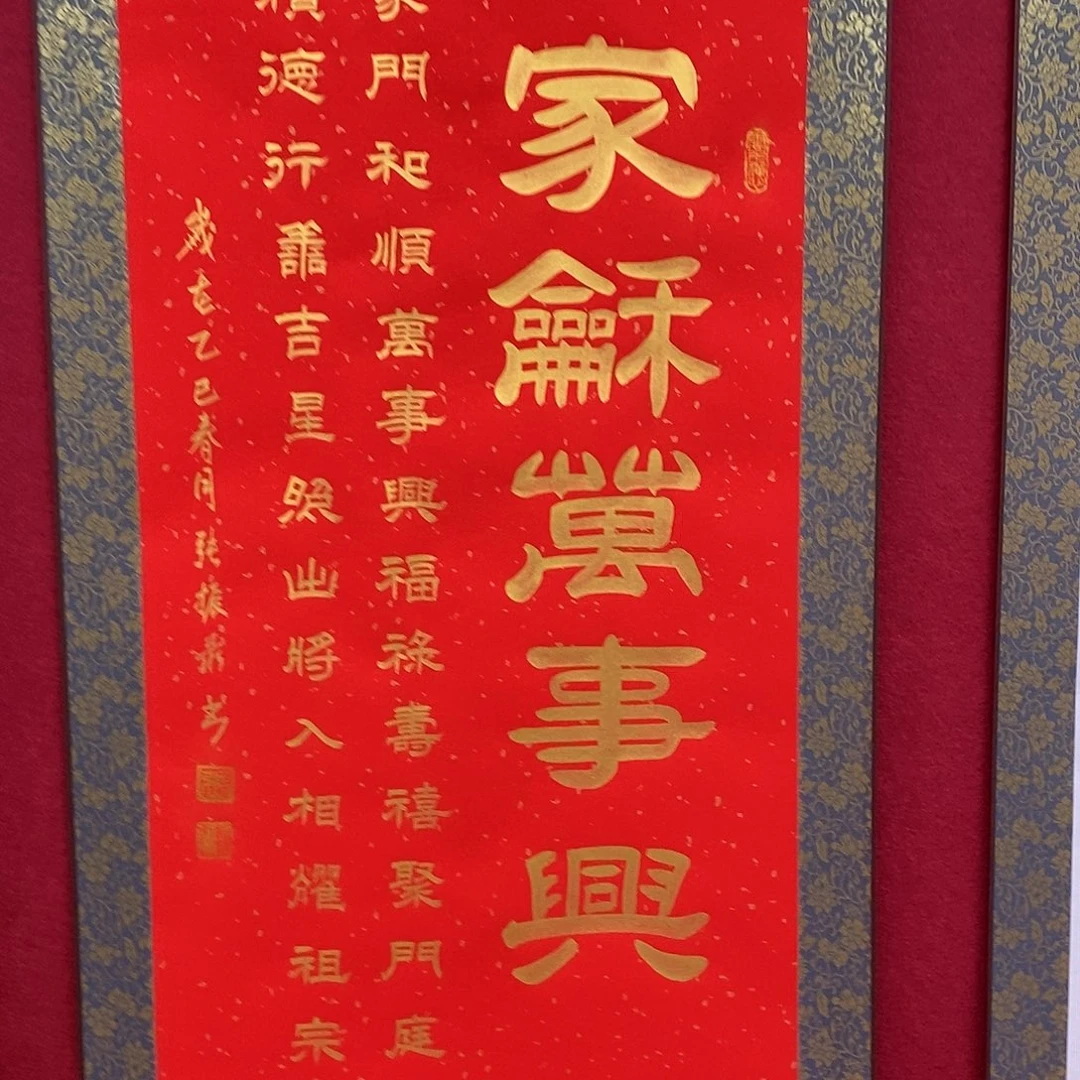 家龢萬事興
家門和順萬事興福祿壽禧聚門庭
積德行善吉星照出將入相耀祖宗
歲在乙巳春月張振